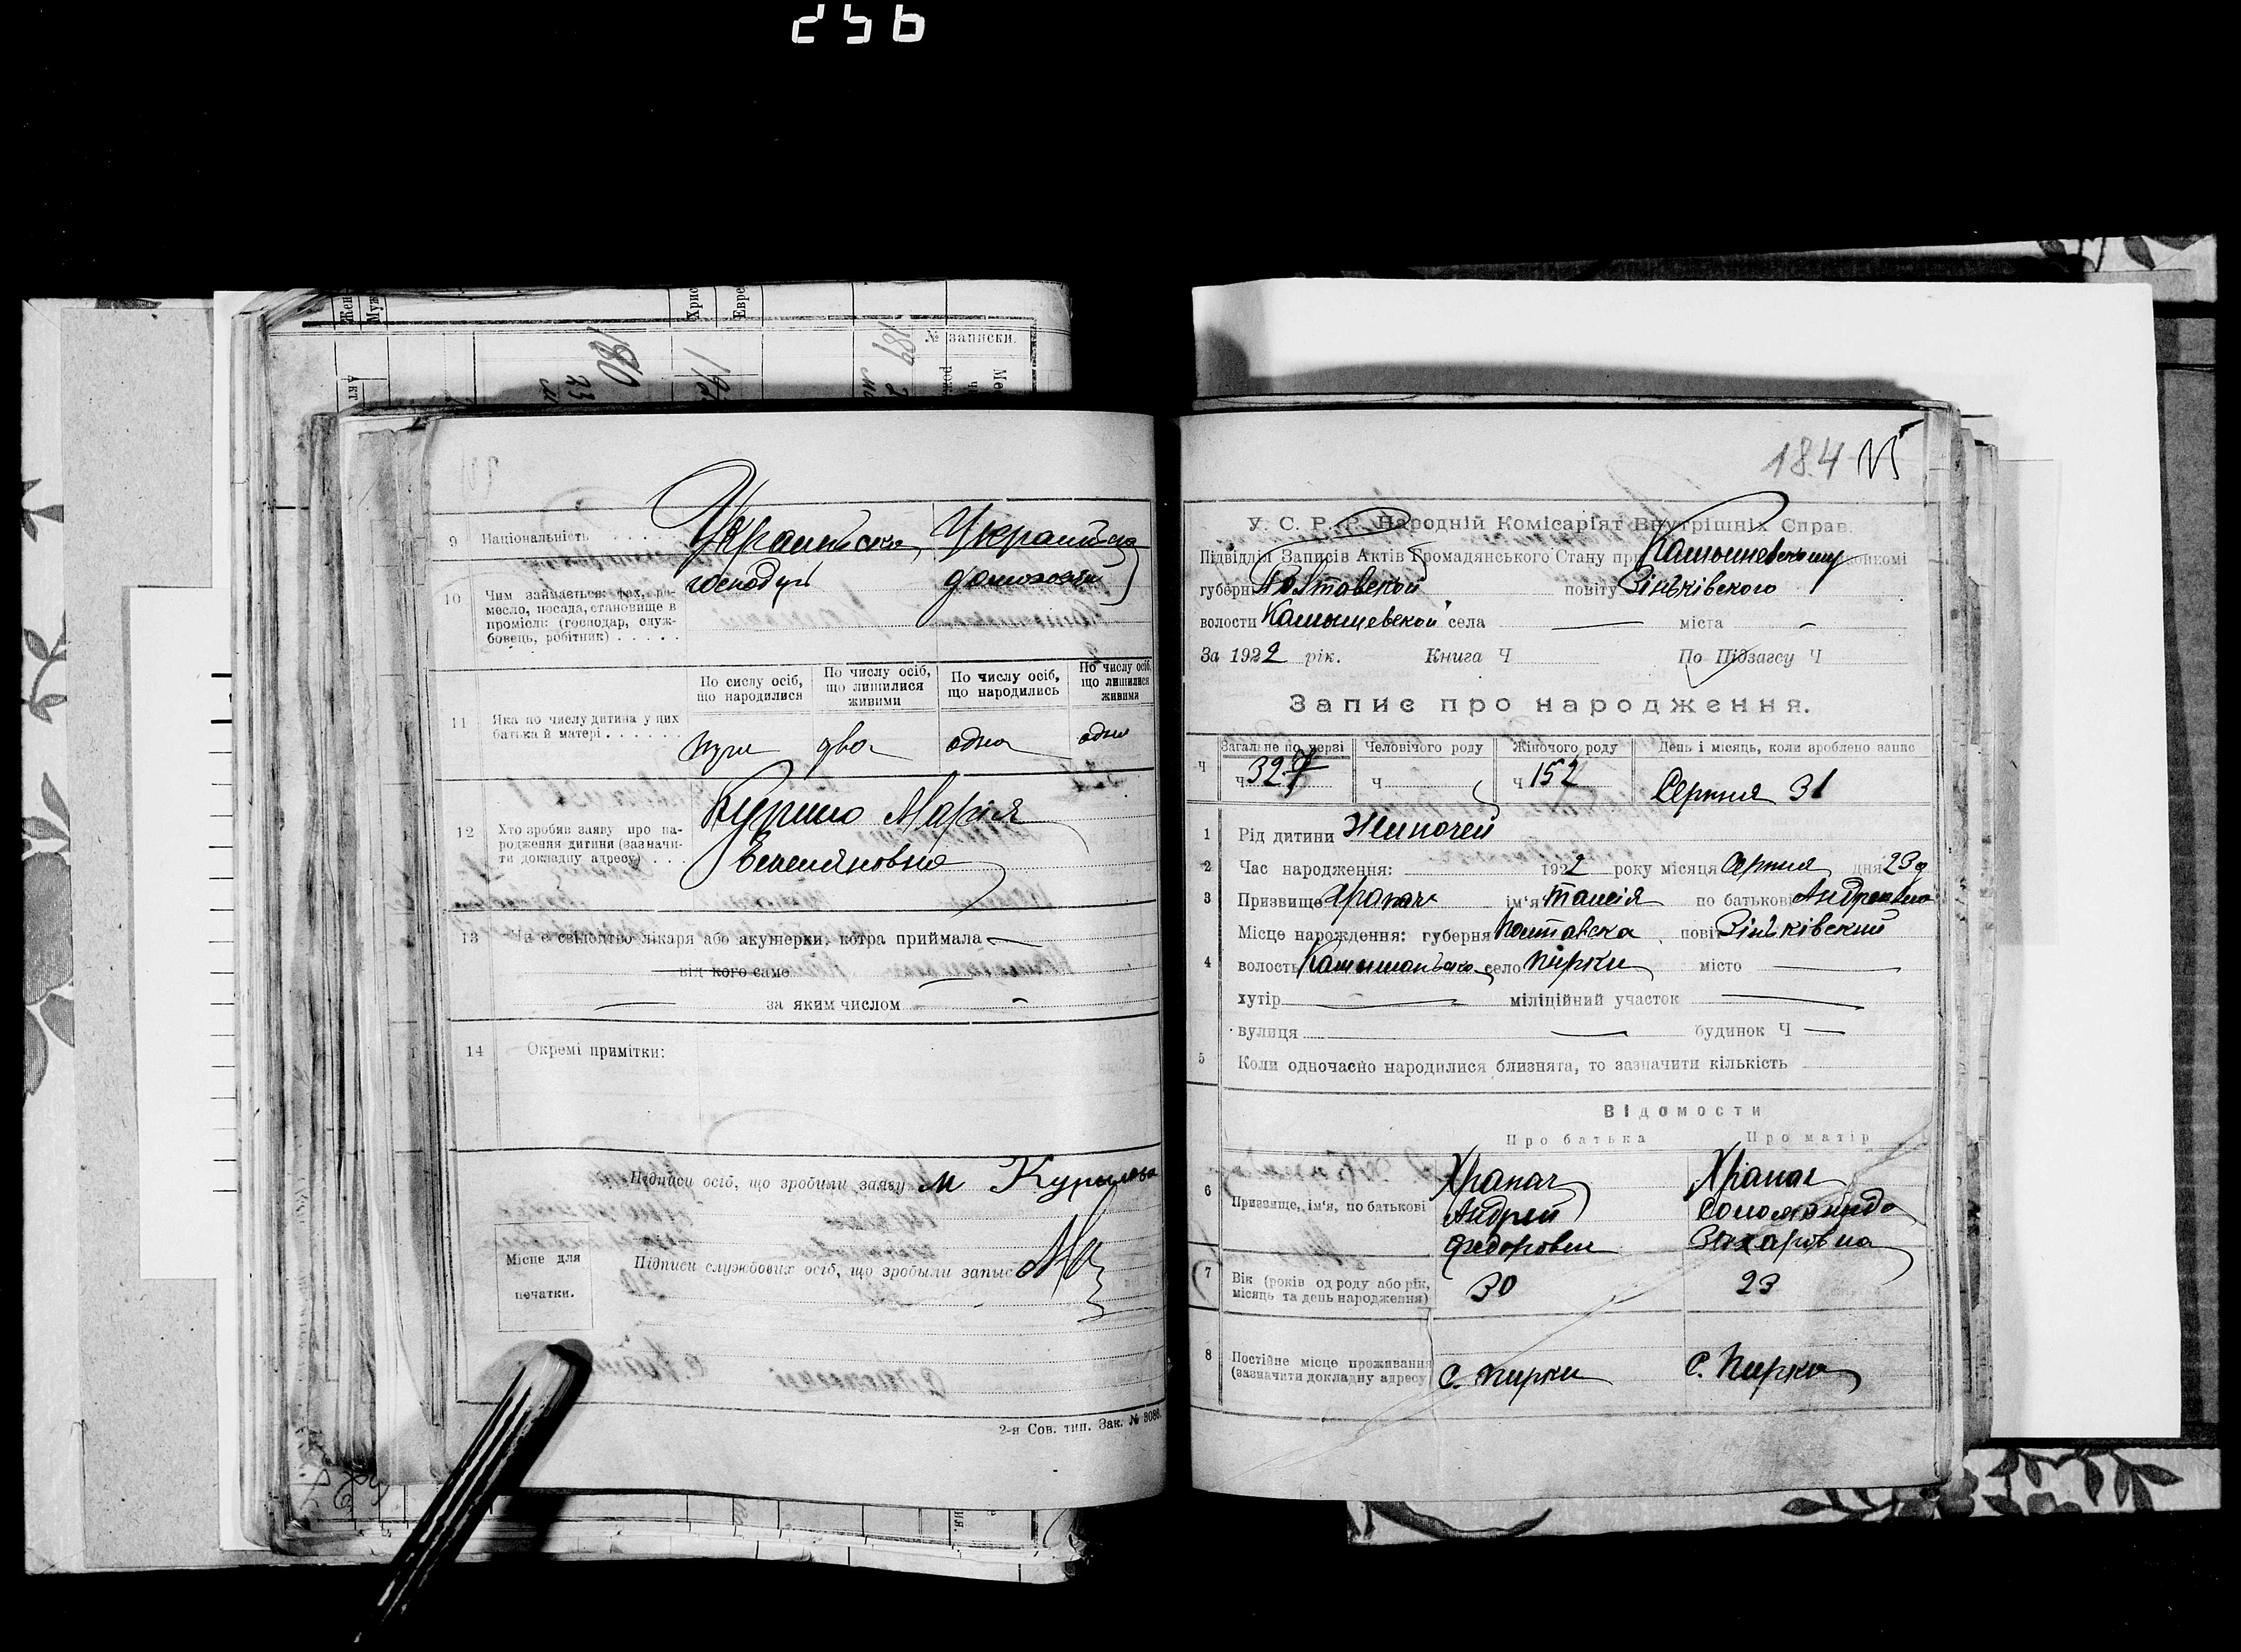 256
Жен
Муж
Христ
Евре
№ записки.
180
189
9 Національність . . . . Украинська Украинська
10 Чим займається: фах, ре-
месло, посада, становище в
проміслі: (господар, служ-
бовець, робітник) . . . . .
господарь
По сислу осіб,
що народилися
По числу осіб,
що лишилися
живими
По числу осіб,
що народились
По числу осіб,
що лишилися
живими
11 Яка по числу дитина у цих
батька й матері . . . . . .
два одна одна
12 Хто зробив заяву про на-
родження дитини (зазначи-
ти докладну адресу) . . .
Курило Марія
13 Чи є свідоцтво лікаря або акушерки, котра приймала
від кого саме
за яким числом
14 Окремі примітки:
Підписи осіб, що зробили заяву М Курилова
Місце для
печатки.
Підписи службових осіб, що зробыли запис
2-я Сов. тип. Зак. № 3086.
184
У. С. Р. Р. Народній Комісаріят Внутрішніх Справ.
Підвідділ Записів Актів Громадянського Стану при Камышевському
губерні Полтавской повіту Зіньківского
волости Камышевской села — міста -
За 1922 рік. Книга Ч По Підзагсу Ч
Запис про народження.
Загальне по черзі Человічого роду Жіночого роду День і місяць, коли зроблено запис
Ч ч 327 ч ч 152 Серпня 31
1 Рід дитини Жиночей
2 Час народження: 1922 року місяця Серпня дня 23 д
3 Призвище Храпач ім'я Таисія по батькові Андреевна
Місце народження: губерня Полтавска повіт Зіньківский
4 волость Камышанська село Пирки місто —
хутір — міліційний участок —
вулиця — будинок Ч —
5 Коли одночасно народилися близнята, то зазначити кількість
Відомости
Про батька Про матір
6 Призвище, ім'я, по батькові
Храпач Храпач
Андрей Соломонида
Федорович Захаровна
7 Вік (років од роду або рік,
місяць та день народження)
30 23
8 Постійне місце проживання
(зазначити докладну адресу)
С. Пирки С. Пирки